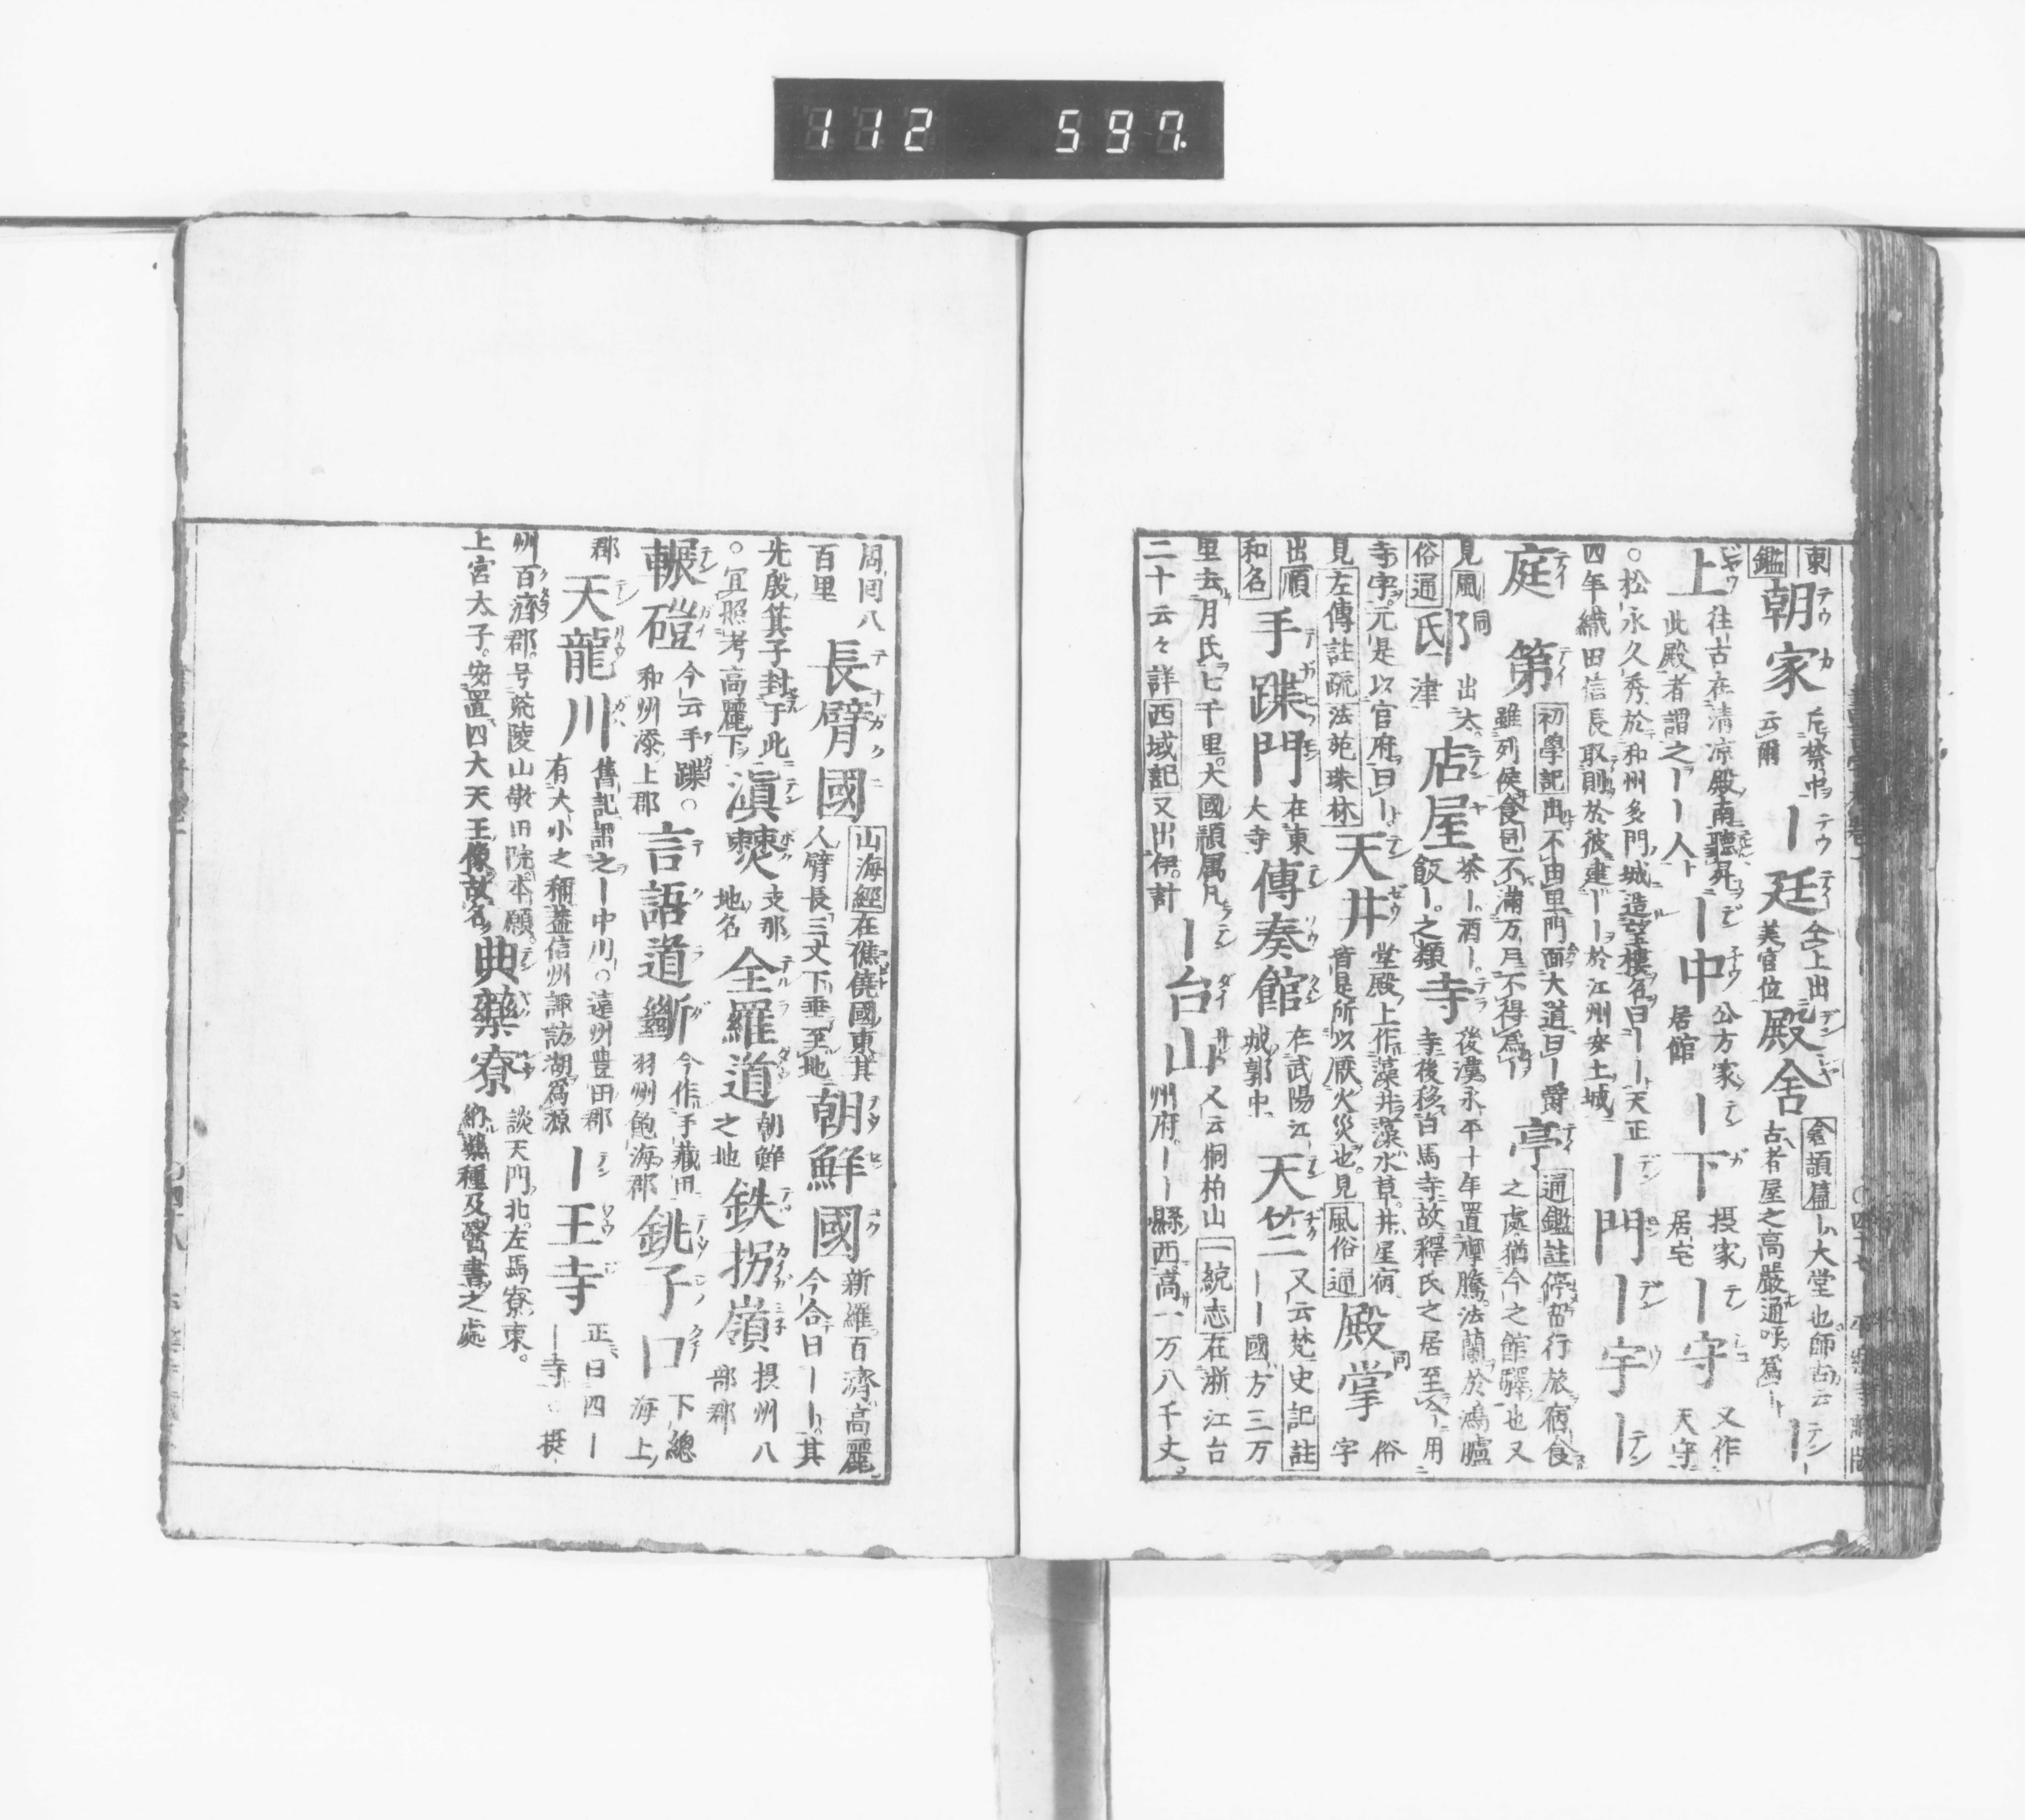 112 597
東鑑 朝家 斥禁中云爾 ー廷 仝上出美官位 殿舍 倉頡篇ー大堂也師古云古者屋之高嚴通呼爲ー ー
上 往古在清凉殿南聽昇此殿者謂之ーー人 ー中 公方家居館 ー下 摂家居宅 ー守 又作天守
○松永久秀於和州多門城造望樓名曰ーー天正四年織田信長取則於彼建ーー於江州安土城 ー門 ー宇 ー
庭 第 初學記出不由里門面大道曰ー爵雖列侯食邑不滿万戸不得爲ー 亭 通鑑註停畱行旅宿食之處猶今之館驛也又
見風俗通 邸 同 氐 出太津 店屋 茶ー酒ー飯ー之類 寺 後漢永平十年置摩騰法蘭於鴻臚寺後移白馬寺故釋氏之居至今用
寺字元是以官府曰ー見左傳註疏法苑珠林 天井 堂殿上作藻井藻水草井星病皆是所以厭火災也見風俗通 殿掌 同 俗字
出順和名 手蹀門 在東大寺 傳奏館 在武陽江城郭中 天竺 又云梵史記註ーー國方三万
里去月氏七千里大國隷属凡二十云々詳西域記又出伊計 ー台山 又云桐柏山一統志在浙江台州府ーー縣西高一万八千丈
周囘八百里 長臂國 山海經在僬僥國東其人臂長三丈下垂至地 朝鮮國 新羅百濟高麗今合曰ーー其
先殷箕子封于此○冝照考高麗下 滇㸑 支那地名 全羅道 朝鮮之地 鉄拐嶺 摂州八部郡
輾磑 今云手蹀○和州添上郡 言語道斷 今作手藏田羽州飽海郡 銚子口 下總海上
郡 天龍川 舊記謂之ー中川○遠州豊田郡有大小之稱蓋信州諏訪湖爲源 ー王寺 正曰四ーー寺○摂
州百濟郡号荒陵山敬田院本願上宮太子安置四大天王像故名 典藥寮 談天門北左馬寮東納藥種及醫書之處